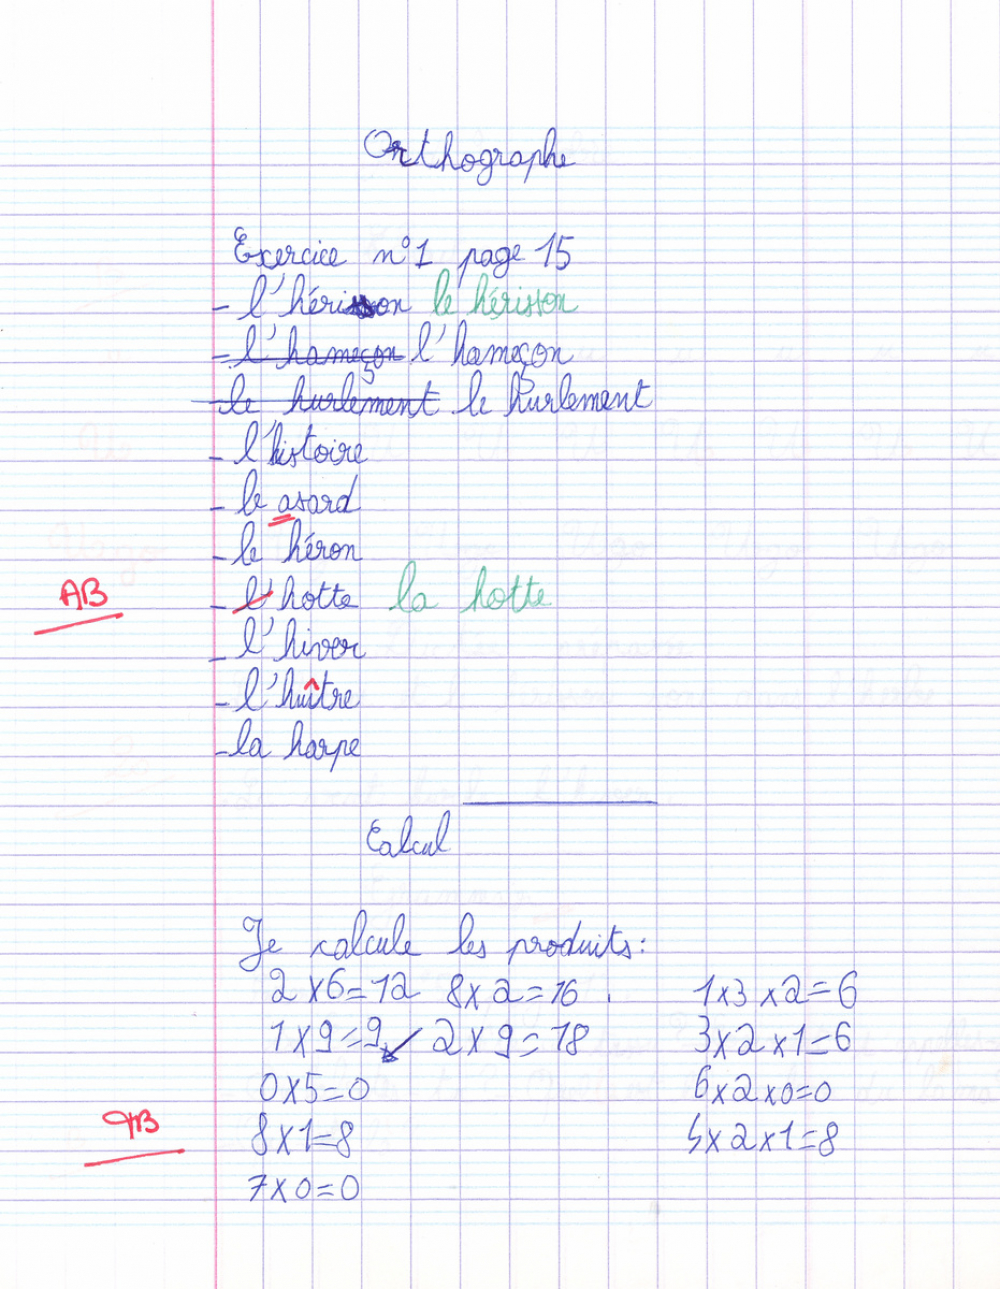 Orthographe
Exercice n°1 page 15
- l'hérisson le hérisson
- l'hameçon l'hameçon
- le hurlement le hurlement
- l'histoire
- le asard
- le héron
AB
- l'hotte la hotte
- l'hiver
- l'huître
- la harpe
Calcul
Je calcule les produits :
2 x 6 = 12 8 x 2 = 16 . 1 x 3 x 2 = 6
1 x 9 = 9 2 x 9 = 18 3 x 2 x 1 = 6
0 x 5 = 0 6 x 2 x 0 = 0
TB
8 x 1 = 8 4 x 2 x 1 = 8
7 x 0 = 0